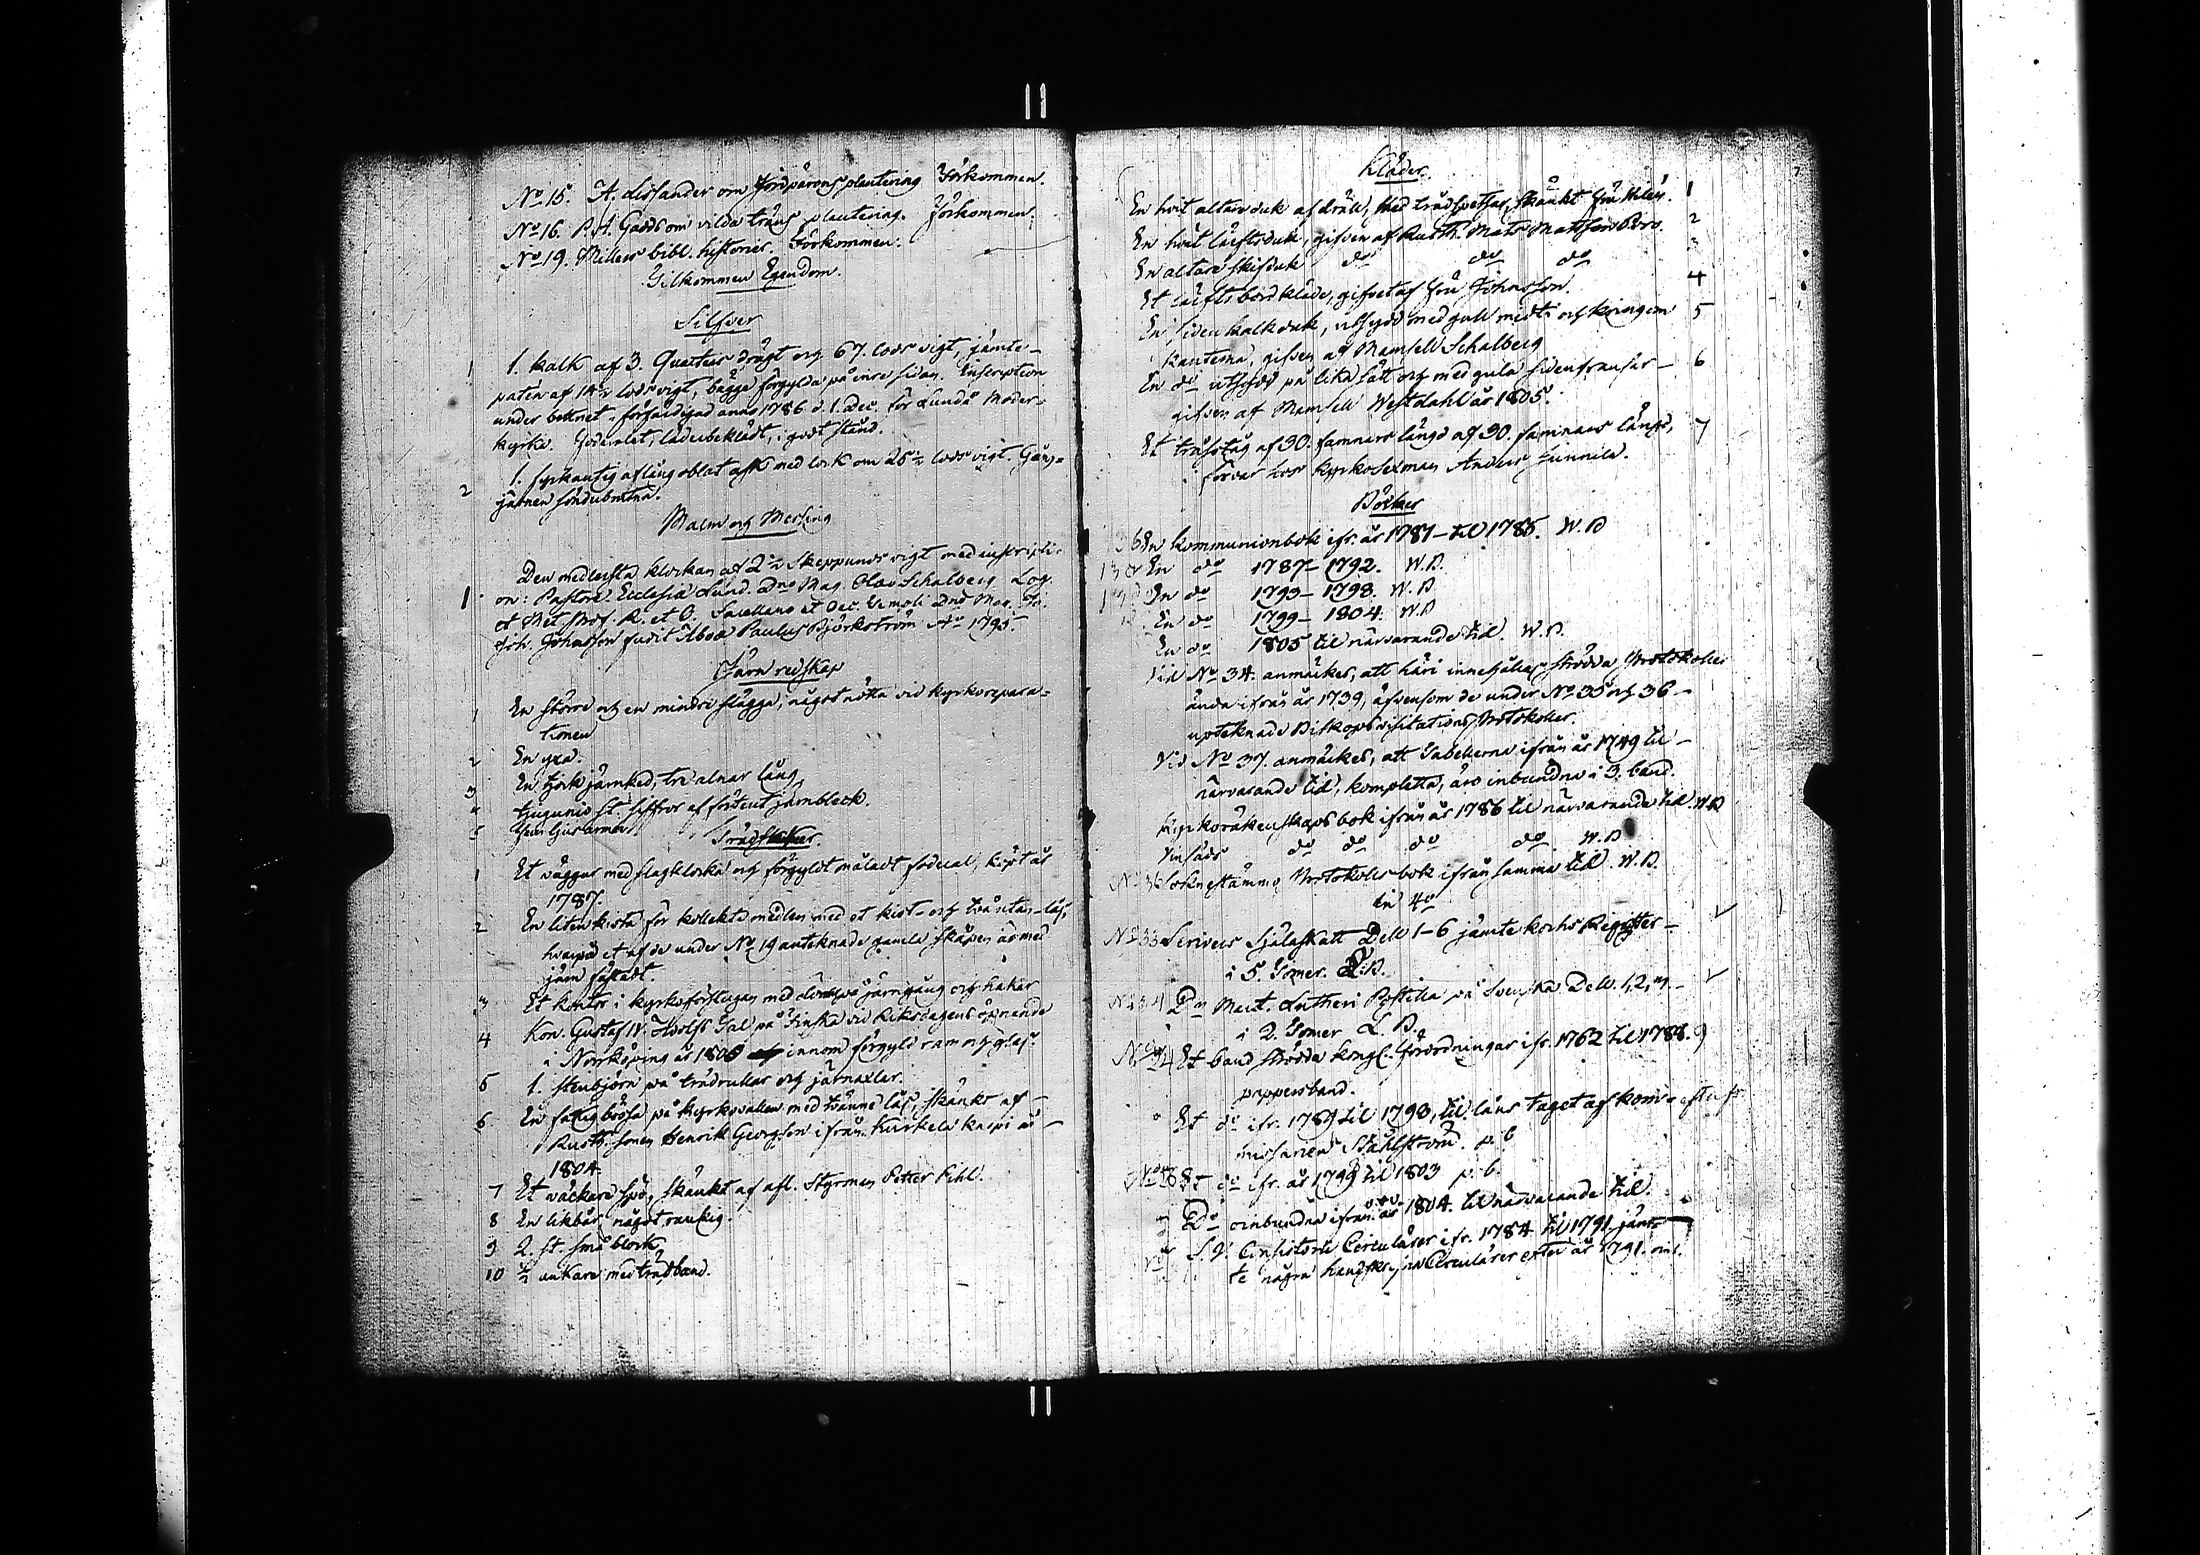 No 15. A. Lissander om Jordpärons plantering Förkommen.
No 16. P. A. Gadds om vilda träns plantering. Förkommen.
No 19. Millers bibl. historier. Förkommen.
Tilkommen Egendom.
Silfver
1 1. kalk af 3. Quarters drygt och 67. lods vigt, jämte
paten af 14½ lods vigt, bägge förgylda på inre sidan. Inscription
under bottnet: förfärdigad anno 1786 d. 1. Dec. för Lundå Moder-
kyrka. Foderalet, läderbeklädt, i godt stånd.
2 1. fyrkantig aflång oblat ask med lock om 25½ lods vigt. Gång-
järnen sönderbrutna.
Malm och Messing
1 Den medlersta klockan af 2½ Skeppunds vigt med inscripti-
on: Pastore Ecclesiæ Lund. Dno Mag. Olao Schalberg Log.
et Met. Prof. R. et O. Sacellano et Dno Mag.
Joh. Johansson fudit Aboæ Paulus Björkström Ao 1795.
Järn redskap
1 En större och en mindre slägga, något nötta vid kyrkorepara-
tionen
2 En yxa.
3 En tjock järnked, tre alnar lång
4 tjugunio st. siffror af förtent järnbleck.
5 ljusarmar
Trädsaker.
1 Et väggur med slagklocka och förgyldt måladt foderal, köpt år
1787.
2 En liten kista för kollekt medlen med et kist- och tvänne lås,
hvarvid et af de under No 19 antecknade gamla skåpen är med
järn fästadt
3 Et kontor i kyrkoförstugan med järngång och hakar
4 Kon. Gustaf IV. Adolfs Tal på Finska vid Riksdagens öpnande
i Norrköping år 1800 innom förgyld ram och glas.
5 1. stenbjörn på trädrullar och järnaxlar.
6 En fattigbössa på kyrkovallen med tvänne lås, skänkt af
Rusth. sonen Henrik Georgsson ifrån Kurkela kaspi år
1804.
7 Et väckare spö, skänkt af afl. Styrman Petter Pihl.
8 En likbår, något rankig.
9 2. st. små block
10 ½ ankare med trädband.
Kläder.
En hvit altarduk af dräll, med trådspetsar, skänkt 1
En hvit läriftsduk, gifven af Rusth. Mats Matsson 2
En altare skifduk do do do 3
Et läriftsbordkläde, gifvet af fru Johansson. 4
En siden kalkduk, utsydd med gull midti och kringom 5
kanterna, gifven af Mamsell Schalberg
En do utsydd på lika sätt och med gula sidenfransar 6
gifven af Mamsell Westdahl år 1805.
Et tråssståg af 30. famnars längd af 30. famnars längd, 7
i förvar hos kyrkosexman Anders Junnila.
Böcker
36 En kommunionbok ifr. år 1781 til 1786. W. B
En do 1787–1792. W. B.
En do 1793–1798. W. B
En do 1799–1804. W. B
En do 1805 til närvarande tid. W. B.
Vid No 34. anmärkes, att häri innehålles strödda Protokoller
ända ifrån år 1739, äfvensom de under No 35 och 36
upteknade Biskopsvisitations Protokoller.
Vid No 37. anmärkes, att Tabellerna ifrån år 1749 til
närvarande tid, kompletta, äro inbundna i 3. band.
Kyrkoräkenskaps bok ifrån år 1786 til närvarande tid. W. B
do do do do W. B
No 36 Sokne stämmo Protokolls bok ifrån samma tid. W. B.
in 4o
No 33 Scrivers Själaskatt Del 1–6 jämte kochs Register
i 5. Tomer. L. B.
No 34 Dn Mart. Lutheri Postilla på Svenska Del. 1, 2,
i 2. Tomer L. B.
No 4 Et band strödda kongl. förordningar ifr. 1762 til 1788.
pappersband.
Et do ifr. 1789 til 1798, til låns taget af kom-
missarien Stählström. p. b
Et do ifr. år 1799 til 1803 p. b.
Do oinbundna ifrån år 1804. til närvarande tid.
S. V. Consistorii Circulärer ifr. 1784 til 1791. jäm-
te några handskrifna Circulärer efter år 1791.